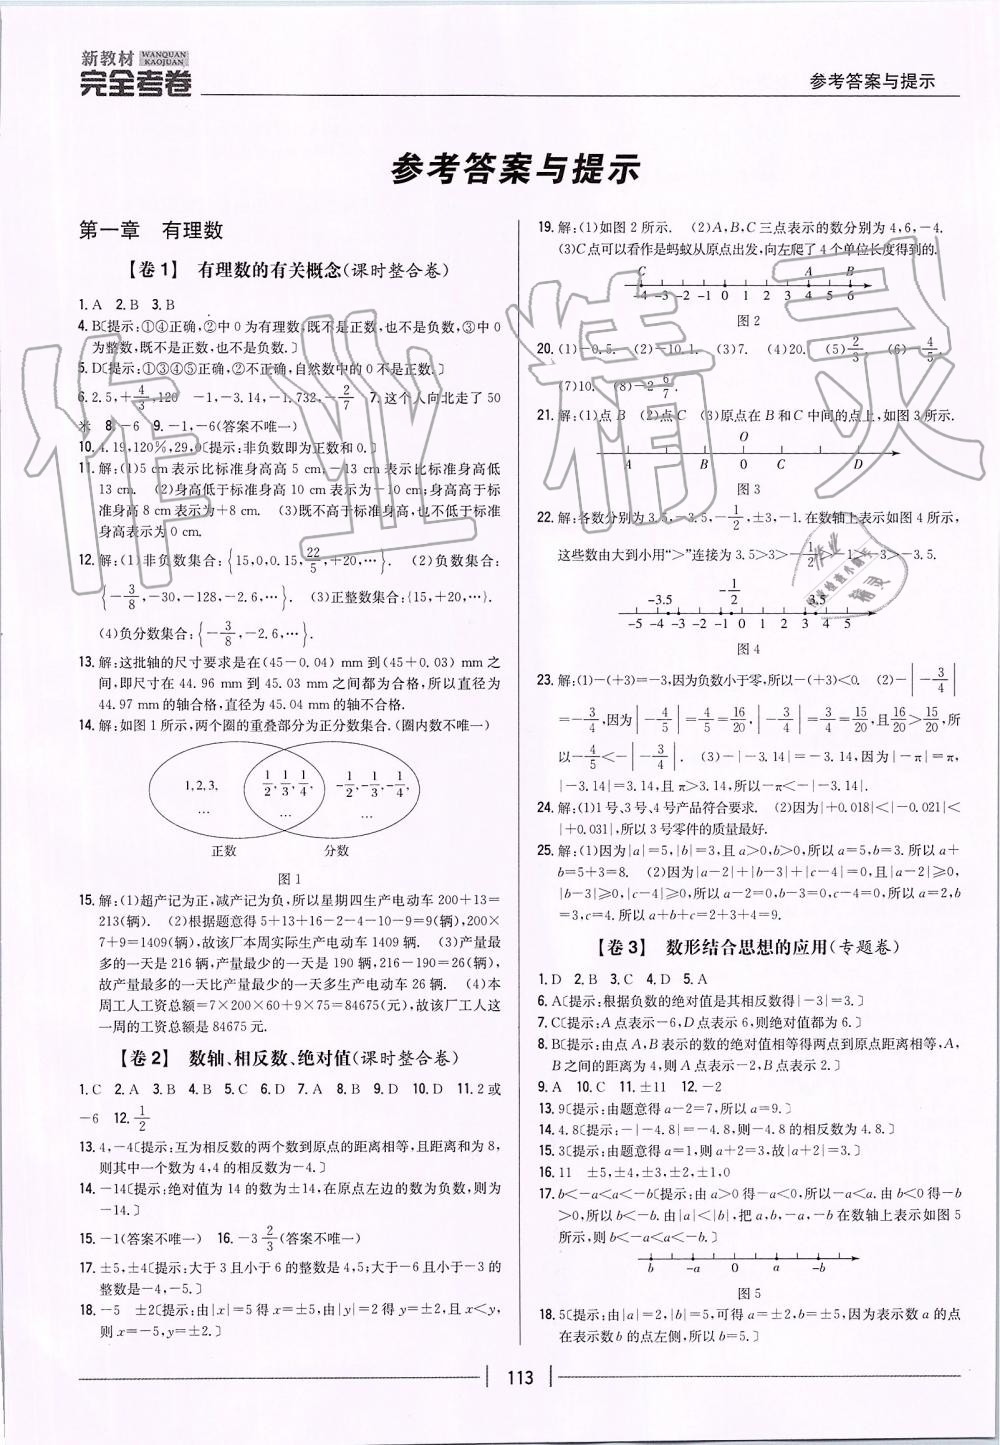 新教材 WANQUAN KAOJUAN
完全考卷
参考答案与提示
参考答案与提示
第一章 有理数
【卷1】 有理数的有关概念(课时整合卷)
1. A 2. B 3. B
4. B〔提示:①④正确,②中0为有理数,既不是正数,也不是负数,③中0
为整数,既不是正数,也不是负数.〕
5. D〔提示:①③④⑤正确,②不正确,自然数中的0不是正数.〕
6. 2.5,+4/3,120 -1,-3.14,-1.732,-2/7 7. 这个人向北走了50
米 8. -6 9. -1,-6(答案不唯一)
10. 4.19,120%,29,0〔提示:非负数即为正数和0.〕
11. 解:(1)5 cm表示比标准身高高5 cm.-13 cm表示比标准身高低
13 cm. (2)身高低于标准身高10 cm表示为-10 cm;身高高于标
准身高8 cm表示为+8 cm. (3)既不高于标准身高,也不低于标准
身高表示为0 cm.
12. 解:(1)非负数集合:{15,0,0.15,22/5,+20,…}. (2)负数集合:
{-3/8,-30,-128,-2.6,…}. (3)正整数集合:{15,+20,…}.
(4)负分数集合:{-3/8,-2.6,…}.
13. 解:这批轴的尺寸要求是在(45-0.04) mm到(45+0.03) mm之
间,即尺寸在44.96 mm到45.03 mm之间都为合格,所以直径为
44.97 mm的轴合格,直径为45.04 mm的轴不合格.
14. 解:如图1所示,两个圈的重叠部分为正分数集合.(圈内数不唯一)
1,2,3. 1/2,1/3,1/4 -1/2,-1/3,-1/4
… … …
正数 分数
图1
15. 解:(1)超产记为正,减产记为负,所以星期四生产电动车200+13=
213(辆). (2)根据题意得5+13+16-2-4-10-9=9(辆),200×
7+9=1409(辆),故该厂本周实际生产电动车1409辆. (3)产量最
多的一天是216辆,产量最少的一天是190辆,216-190=26(辆),
故产量最多的一天比产量最少的一天多生产电动车26辆. (4)本
周工人工资总额=7×200×60+9×75=84675(元),故该厂工人这
一周的工资总额是84675元.
【卷2】 数轴、相反数、绝对值(课时整合卷)
1. C 2. A 3. B 4. B 5. C 6. D 7. A 8. B 9. D 10. D 11. 2或
-6 12. 1/2
13. 4,-4〔提示:互为相反数的两个数到原点的距离相等,且距离和为8,
则其中一个数为4,4的相反数为-4.〕
14. -14〔提示:绝对值为14的数为±14,在原点左边的数为负数,则为
-14.〕
15. -1(答案不唯一) 16. -3 2/3(答案不唯一)
17. ±5,±4〔提示:大于3且小于6的整数是4,5;大于-6且小于-3的
整数是-4,-5.〕
18. -5 ±2〔提示:由|x|=5得x=±5,由|y|=2得y=±2,且x<y,
则x=-5,y=±2.〕
19. 解:(1)如图2所示. (2)A,B,C三点表示的数分别为4,6,-4.
(3)C点可以看作是蚂蚁从原点出发,向左爬了4个单位长度得到的.
C A B
-4 -3 -2 -1 0 1 2 3 4 5 6
图2
20. (1)-0.5. (2)-10.1. (3)7. (4)20. (5)2/3. (6)-4/5.
(7)10. (8)-2 6/7.
21. 解:(1)点B (2)点C (3)原点在B和C中间的点上,如图3所示.
O
A B 0 C D
图3
22. 解:各数分别为3.5,-3.5,-1/2,±3,-1.在数轴上表示如图4所示,
这些数由大到小用“>”连接为3.5>3>-1/2>-1>-3>-3.5.
-3.5 -1/2 3.5
-5 -4 -3 -2 -1 0 1 2 3 4 5
图4
23. 解:(1)-(+3)=-3,因为负数小于零,所以-(+3)<0. (2)-|-3/4|
=-3/4,因为|-4/5|=4/5=16/20,|-3/4|=3/4=15/20,且16/20>15/20,所
以-4/5<-|-3/4|. (3)-|-3.14|=-3.14,因为|-π|=π,
|-3.14|=3.14,且π>3.14,所以-π<-|-3.14|.
24. 解:(1)1号、3号、4号产品符合要求. (2)因为|+0.018|<|-0.021|<
|+0.031|,所以3号零件的质量最好.
25. 解:(1)因为|a|=5,|b|=3,且a>0,b>0,所以a=5,b=3.所以a+
b=5+3=8. (2)因为|a-2|+|b-3|+|c-4|=0,且|a-2|≥0,
|b-3|≥0,|c-4|≥0,所以a-2=0,b-3=0,c-4=0,所以a=2,b
=3,c=4.所以a+b+c=2+3+4=9.
【卷3】 数形结合思想的应用(专题卷)
1. D 2. B 3. C 4. D 5. A
6. A〔提示:根据负数的绝对值是其相反数得|-3|=3.〕
7. C〔提示:A点表示-6,D点表示6,则绝对值都为6.〕
8. B〔提示:由点A,B表示的数的绝对值相等得两点到原点距离相等,A,
B之间的距离为4,则A点表示-2,B点表示2.〕
9. A 10. C 11. ±11 12. -2
13. 9〔提示:由题意得a-2=7,所以a=9.〕
14. 4.8〔提示:-|-4.8|=-4.8,则-4.8的相反数为4.8.〕
15. 3〔提示:由题意得a=1,则a+2=3,故|a+2|=3.〕
16. 11 ±5,±4,±3,±2,±1,0
17. b<-a<a<-b〔提示:由a>0得-a<0,所以-a<a.由b<0得-b
>0,所以b<-b.由|a|<|b|,把a,b,-a,-b在数轴上表示如图5
所示,则b<-a<a<-b.〕
b -a 0 a -b
图5
18. 5〔提示:由|a|=2,|b|=5,可得a=±2,b=±5,因为表示数a的点
在表示数b的点左侧,所以b=5.〕
113
作业精灵
作业
精灵